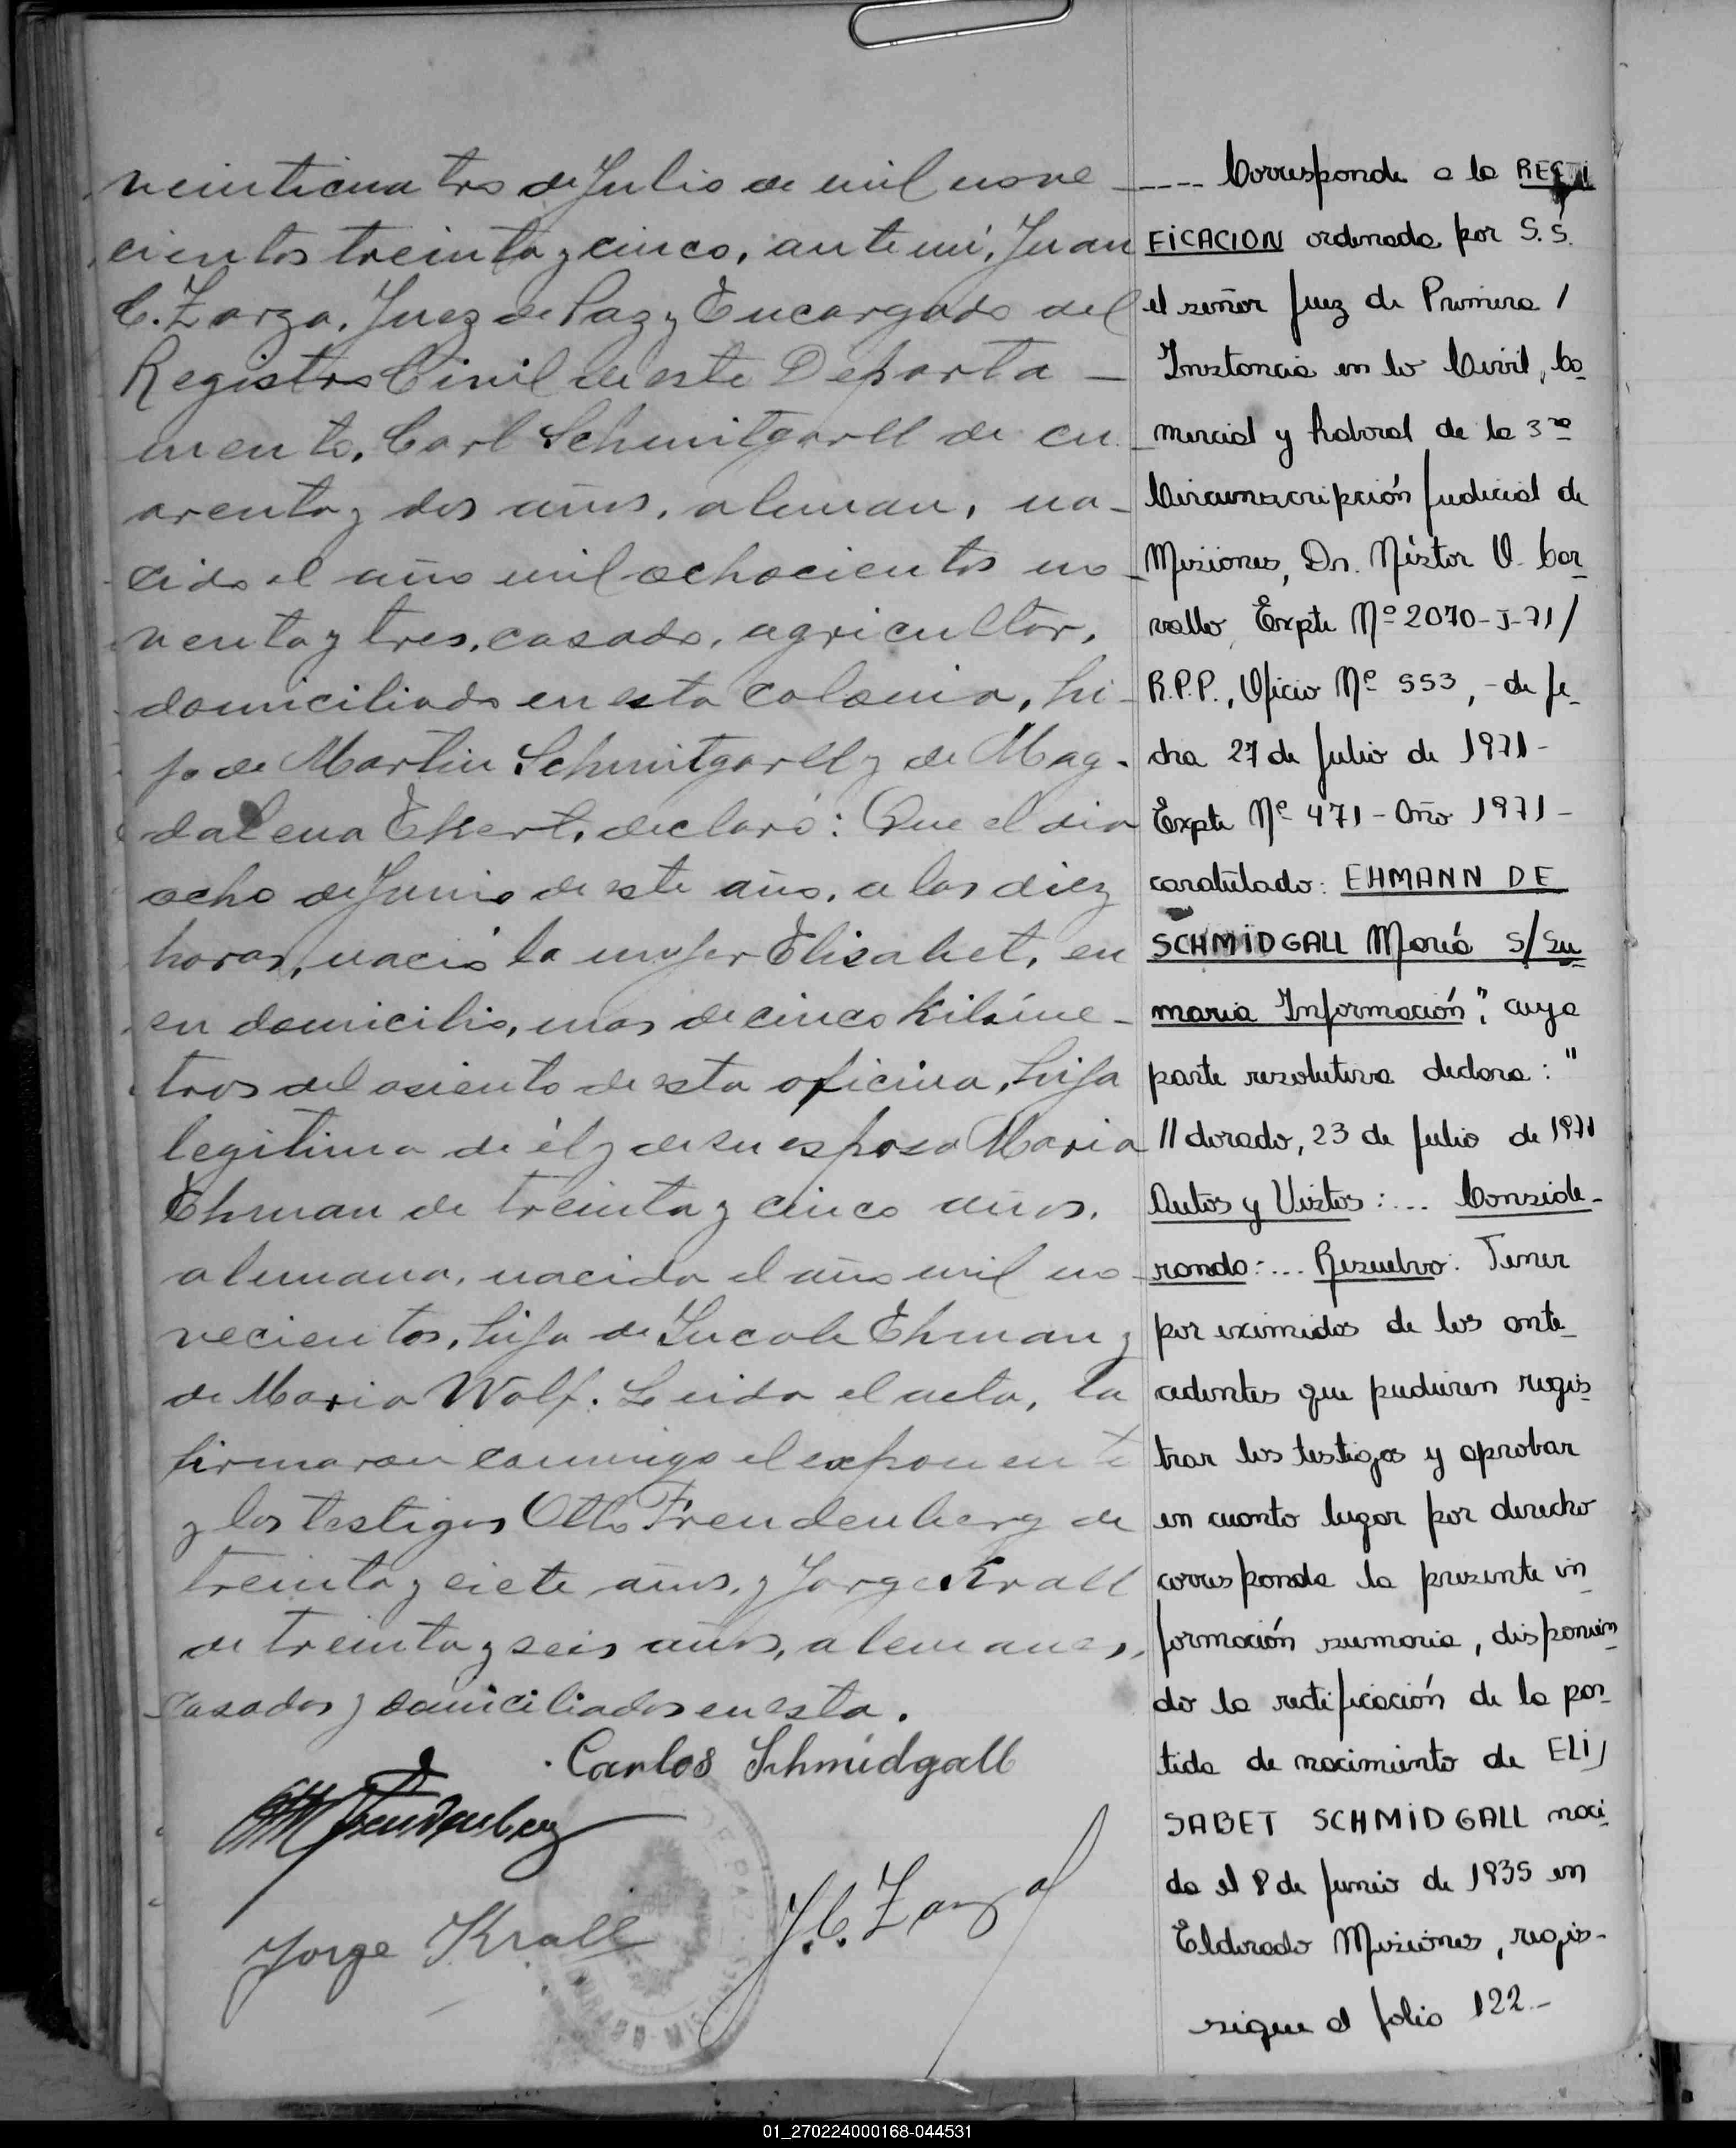 veinticuatro de Julio de mil nove
cientos treinta y cinco, ante mi, Juan
C. Zarza, Juez de Paz y Encargado del
Registro Civil de este Departa —
mento, Carl Schmitgarll de cu
arenta y dos años, aleman, na-
cido el año mil ochocientos no
venta y tres, casado, agricultor,
domiciliado en esta colonia, hi-
jo de Martin Schmitgarll y de Mag-
dalena Ekert, declaró: Que el dia
ocho de Junio de este año, a las diez
horas, nació la mujer Elisabet, en
su domicilio, mas de cinco kilóme-
tros del asiento de esta oficina, hija
legitima de él y de su esposa Maria
Ehman de treinta y cinco años,
alemana, nacida el año mil no
vecientos, hija de Jucob Ehman y
de Maria Wolf. Leida el acta, la
firmaron conmigo el exponente
y los testigos Otto Freudenberg de
treinta y ciete años, y Jorge Krall
de treinta y seis años, alemanes,
casados y domiciliados en esta.
Carlos Schmidgall
Otto Freudenberg
Jorge Krall
J. C. Zarza
---- Corresponde a la RECTI
FICACION ordenada por S.S.
el señor Juez de Primera /
Instancia en lo Civil, Co
mercial y Laboral de la 3ra
Circunscripción Judicial de
Misiones, Dr. Néstor O. Car
vallo, Expte Nº 2070-J-71/
R.P.P., Oficio Nº 553, - de fe
cha 27 de Julio de 1971 -
Expte Nº 471 - Año 1971 -
caratulado: EHMANN DE
SCHMIDGALL María s/ Su
maria Información", cuya
parte resolutiva declara: "
//dorado, 23 de Julio de 1971
Autos y Vistos: ... Conside-
rando: ... Resuelvo: Tener
por eximidos de los ante
cedentes que pudieren regis
trar los testigos y aprobar
en cuanto lugar por derecho
corresponda la presente in
formación sumaria, disponien
do la rectificación de la par
tida de nacimiento de ELI/
SABET SCHMIDGALL naci
da el 8 de Junio de 1935 en
Eldorado Misiones, regis-
sigue al folio 122.-
01_270224000168-044531